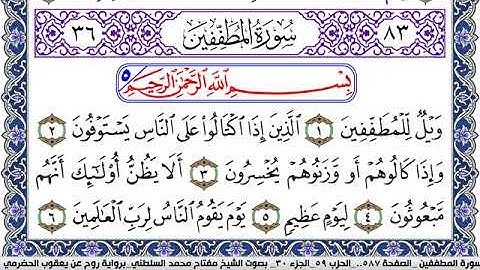 ٨٣ سُورَةُ الْمُطَفِّفِينَ ٣٦
بِسْمِ اللَّهِ الرَّحْمَٰنِ الرَّحِيمِ ٥
وَيْلٌ لِّلْمُطَفِّفِينَ ١ الَّذِينَ إِذَا اكْتَالُوا عَلَى النَّاسِ يَسْتَوْفُونَ ٢
وَإِذَا كَالُوهُمْ أَو وَّزَنُوهُمْ يُخْسِرُونَ ٣ أَلَا يَظُنُّ أُوْلَٰٓئِكَ أَنَّهُم
مَّبْعُوثُونَ ٤ لِيَوْمٍ عَظِيمٍ ٥ يَوْمَ يَقُومُ النَّاسُ لِرَبِّ الْعَالَمِينَ ٦
سورة المطففين _ الصفحة ٥٨٧_ الحزب ٥٩_ الجزء ٣٠_ بصوت الشيخ مفتاح محمد السلطني_برواية روح عن يعقوب الحضرمي